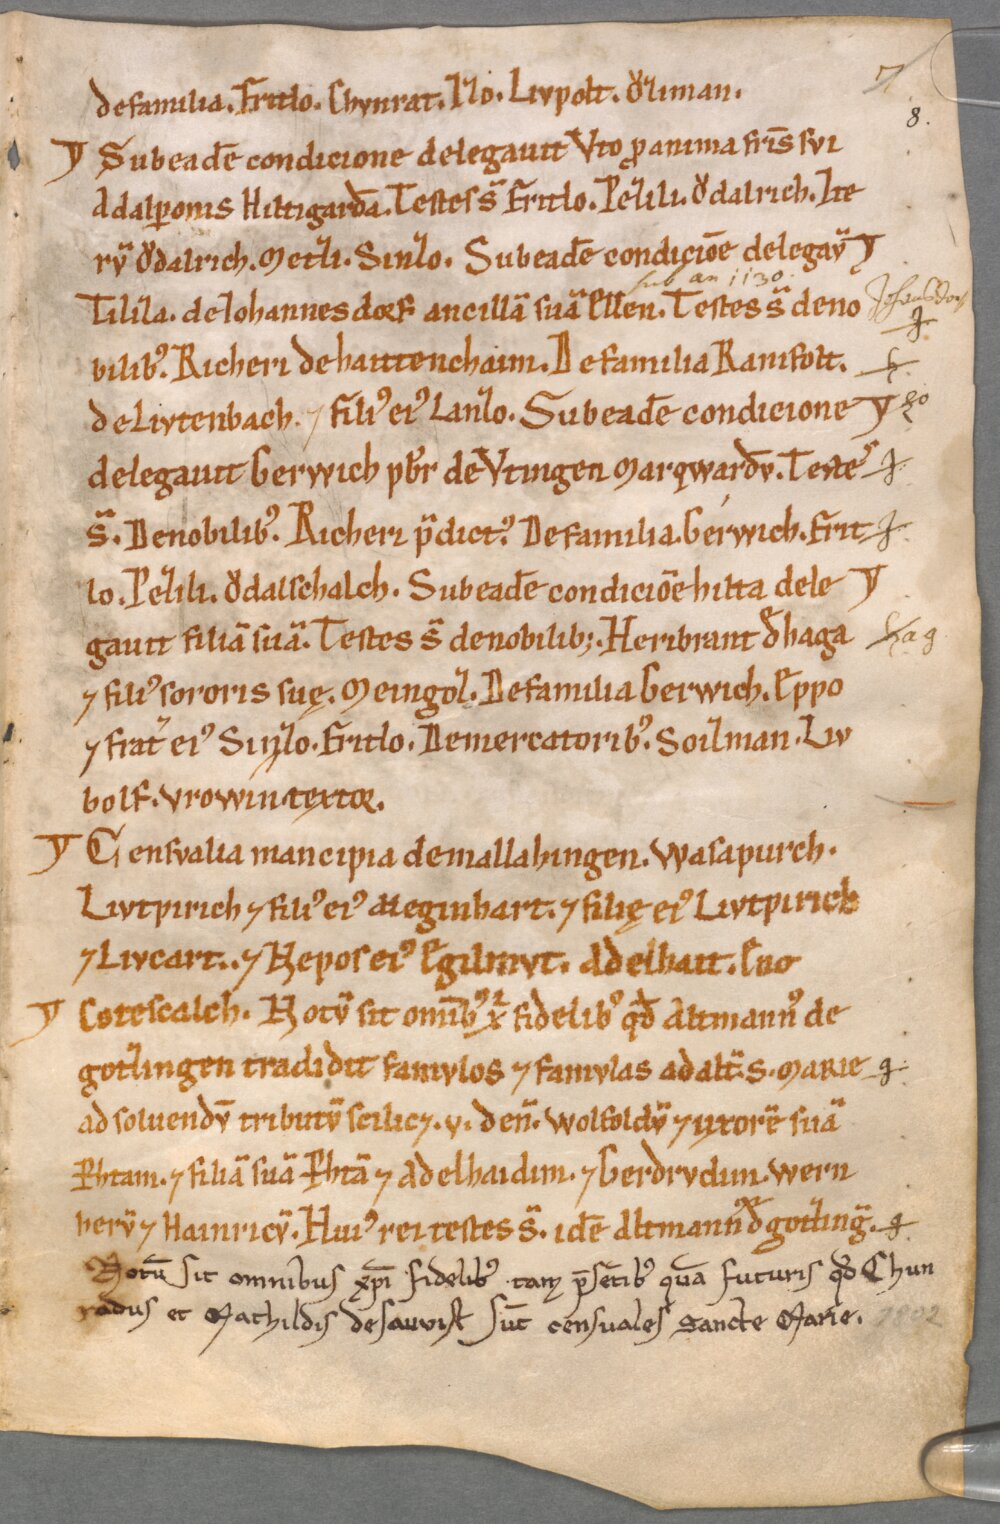 defamilia. Fritlo. Chvnrat. Ilo. Livpolt. Vͦliman.
7
8.
Subeadē condicione delegauit Vto ꝓ anima fr̄is sui
Adalponis Hiltigardā. Testes s̄. Fritlo. Pezili. Vͦdalrich. Ite
rv̄ Vͦdalrich. Mezli. Sinzlo. Subeadē condiciōe delegav̄
sub an 1130.
Tilila. de Iohannesdorf ancillā suā Ellen. Testes s̄ deno
bilibꝰ. Richeri dehaittenchaim. Defamilia Ranifolt.
deLivtenbach. ⁊ filiꝰ eiꝰ Lanzlo. Subeadē condicione
delegauit Gerwich pb̄r de Vtingen Marqwardv̄. Testes
s̄. Denobilibꝰ. Richeri p̄dictꝰ. Defamilia. Gerwich. Frit
lo. Pezili. Vͦdalschalch. Subeadē condiciōe hilta dele
gauit filiā suā. Testes s̄ denobilibꝫ. Heribrant đ haga
hag
⁊ filiꝰ sororis suę. Meingoz. Defamilia Gerwich. Eppo
⁊ frat̄ eiꝰ Sinzlo. Fritlo. Demercatoribꝰ. Soilman. Liv
bolf. vrowin textor.
Censvalia mancipia demallahingen. Wasapurch.
Livtpirich ⁊ filiꝰ eiꝰ Meginhart. ⁊ filię eiꝰ Livtpirich
⁊ Livcart. ⁊ Nepos eiꝰ Egilmvt. Adelhait. Eno
Gotescalch. Notv̄ sit omībꝰ xp̄i fidelibꝰ qd̄ Altmannꝰ de
gotlingen tradidit famvlos ⁊ famvlas ad alt̄. S. Marie
ad soluendv̄ tributv̄ scilicꝫ. v. den̄. Wolfoldv̄ ⁊ uxorē suā
Phtam. ⁊ filiā suā Phtā ⁊ Adelhaidim. ⁊ Gerdrvdim. Wern
herv̄ ⁊ Hainricv̄. Huiꝰ rei testes s̄. idē Altmannꝰ đ gotlinḡ.
Notū sit omnibus xp̄i fidelibꝰ tam p̄sētibꝰ quā futuris qd̄ Chun
radus et Mathildis desauvist sūt censuales sancte Marie.